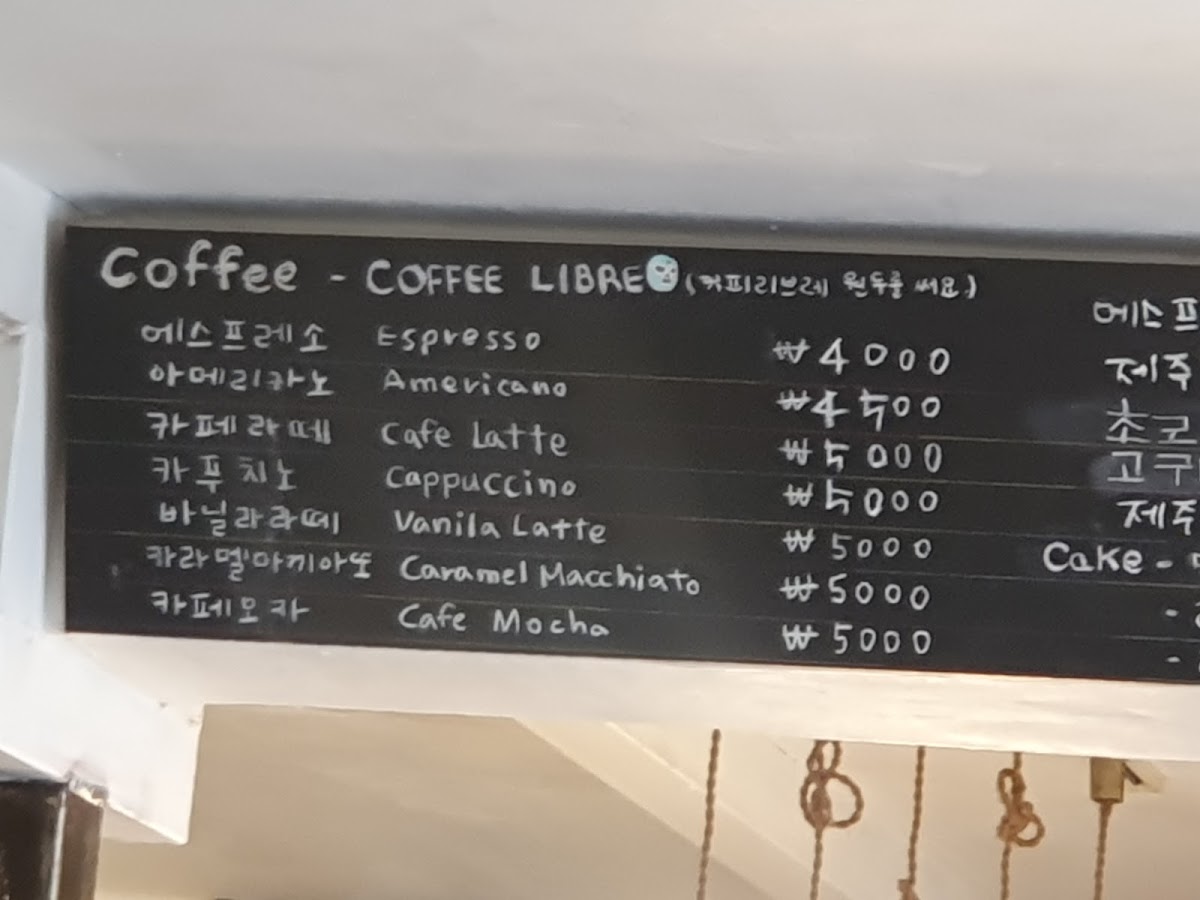 Coffee - COFFEE LIBRE (커피리브레 원두를 써요)
에스프레소 Espresso ₩4000
아메리카노 Americano ₩4500
카페라떼 Cafe Latte ₩5000
카푸치노 Cappuccino ₩5000
바닐라라떼 Vanila Latte ₩5000
카라멜마끼아또 Caramel Macchiato ₩5000
카페모카 Cafe Mocha ₩5000
에스프
제주
초코
고구
제주
Cake -
-
-